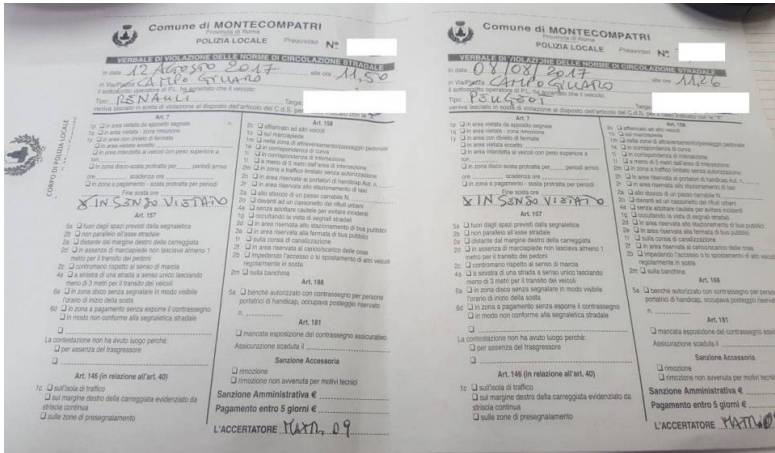 Comune di MONTECOMPATRI
Provincia di Roma
POLIZIA LOCALE Preavviso N°
VERBALE DI VIOLAZIONE DELLE NORME DI CIRCOLAZIONE STRADALE
In data 12 AGOSTO 2017 alle ore 11,50
In Via/Piazza CAMPO GILLARO
il sottoscritto operatore di P.L. ha accertato che il veicolo:
Tipo RENAULT Targa
veniva lasciato in sosta di violazione al disposto dell'articolo del C.d.S.
CORPO DI POLIZIA LOCALE
Art. 7
in area vietata da apposito segnale
in area vietata - zona rimozione
in area con divieto di fermata
in area vietata eccetto
in area interdetta ai veicoli con peso superiore a
ton.
in zona disco-sosta protratta per periodi arrivo
ore scadenza ore
in zona a pagamento - sosta protratta per periodi
Fine sosta ore
X IN SENSO VIETATO
Art. 157
5a fuori dagli spazi previsti dalla segnaletica
2b non parallelo all'asse stradale
2a distante dal margine destro della carreggiata
2d in assenza di marciapiede non lasciava almeno 1
metro per il transito dei pedoni
2c contromano rispetto al senso di marcia
4a a sinistra di una strada a senso unico lasciando
meno di 3 metri per il transito dei veicoli
6b in zona disco senza segnalare in modo visibile
l'orario di inizio della sosta
6d in zona a pagamento senza esporre il contrassegno
in modo non conforme alla segnaletica stradale
La contestazione non ha avuto luogo perché:
per assenza del trasgressore
Art. 146 (in relazione all'art. 40)
1c sull'isola di traffico
sul margine destro della carreggiata evidenziato da
striscia continua
sulle zone di presegnalamento
Art. 158
affiancato ad altri veicoli
sul marciapiede
nella zona di attraversamento/passaggio pedonale
in corrispondenza di curva
in corrispondenza di intersezione
a meno di 5 metri dall'area di intersezione
in zona a traffico limitato senza autorizzazione
in area riservata ai portatori di handicap Aut. n.
in area riservata allo stazionamento di taxi
allo sbocco di un passo carrabile N.
davanti ad un cassonetto dei rifiuti urbani
senza adottare cautele per evitare incidenti
occultando la vista di segnali stradali
in area riservata allo stazionamento di bus pubblici
in area riservata alla fermata di bus pubblici
sulla corsia di canalizzazione
in area riservata al carico/scarico delle cose
impedendo l'accesso o lo spostamento di altri veicoli
regolarmente in sosta
2m sulla banchina
Art. 188
5a benché autorizzato con contrassegno per persone
portatrici di handicap, occupava posteggio riservato
n.
Art. 181
mancata esposizione del contrassegno assicurativo
Assicurazione scaduta il
Sanzione Accessoria
rimozione
rimozione non avvenuta per motivi tecnici
Sanzione Amministrativa €
Pagamento entro 5 giorni €
L'ACCERTATORE MATR. 09
Comune di MONTECOMPATRI
Provincia di Roma
POLIZIA LOCALE Preavviso N°
VERBALE DI VIOLAZIONE DELLE NORME DI CIRCOLAZIONE STRADALE
In data 08/08/2017 alle ore 11,26
In Via/Piazza CAMPO GILLARO
il sottoscritto operatore di P.L. ha accertato che il veicolo:
Tipo PEUGEOT Targa
veniva lasciato in sosta di violazione al disposto dell'articolo del C.d.S.
Art. 7
in area vietata da apposito segnale
in area vietata - zona rimozione
in area con divieto di fermata
in area vietata eccetto
in area interdetta ai veicoli con peso superiore a
ton.
in zona disco-sosta protratta per periodi arrivo
ore scadenza ore
in zona a pagamento - sosta protratta per periodi
Fine sosta ore
X IN SENSO VIETATO
Art. 157
5a fuori dagli spazi previsti dalla segnaletica
2b non parallelo all'asse stradale
2a distante dal margine destro della carreggiata
2d in assenza di marciapiede non lasciava almeno 1
metro per il transito dei pedoni
2c contromano rispetto al senso di marcia
4a a sinistra di una strada a senso unico lasciando
meno di 3 metri per il transito dei veicoli
6b in zona disco senza segnalare in modo visibile
l'orario di inizio della sosta
6d in zona a pagamento senza esporre il contrassegno
in modo non conforme alla segnaletica stradale
La contestazione non ha avuto luogo perché:
per assenza del trasgressore
Art. 146 (in relazione all'art. 40)
1c sull'isola di traffico
sul margine destro della carreggiata evidenziato da
striscia continua
sulle zone di presegnalamento
Art. 158
affiancato ad altri veicoli
sul marciapiede
nella zona di attraversamento/passaggio pedonale
in corrispondenza di curva
in corrispondenza di intersezione
a meno di 5 metri dall'area di intersezione
in zona a traffico limitato senza autorizzazione
in area riservata ai portatori di handicap Aut. n.
in area riservata allo stazionamento di taxi
allo sbocco di un passo carrabile N.
davanti ad un cassonetto dei rifiuti urbani
senza adottare cautele per evitare incidenti
occultando la vista di segnali stradali
in area riservata allo stazionamento di bus pubblici
in area riservata alla fermata di bus pubblici
sulla corsia di canalizzazione
in area riservata al carico/scarico delle cose
impedendo l'accesso o lo spostamento di altri veicoli
regolarmente in sosta
2m sulla banchina
Art. 188
5a benché autorizzato con contrassegno per persone
portatrici di handicap, occupava posteggio riservato
n.
Art. 181
mancata esposizione del contrassegno
Assicurazione scaduta il
Sanzione Accessoria
rimozione
rimozione non avvenuta per motivi tecnici
Sanzione Amministrativa €
Pagamento entro 5 giorni €
L'ACCERTATORE MATR.09